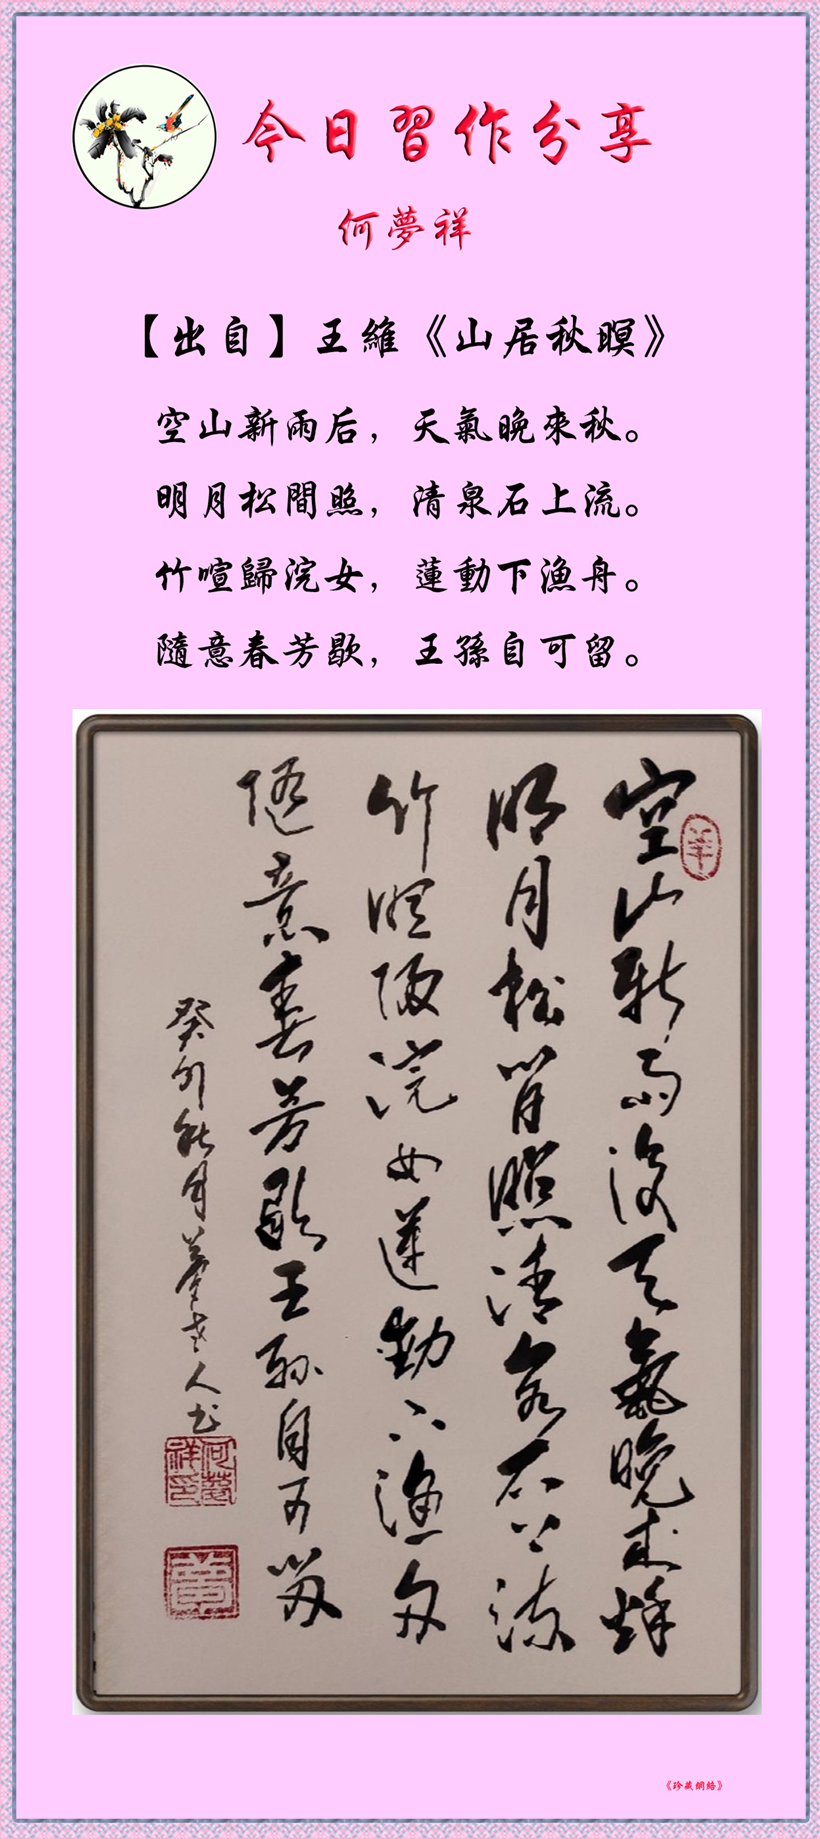 今日習作分享
何夢祥
【出自】王維《山居秋暝》
空山新雨后，天氣晚來秋。
明月松間照，清泉石上流。
竹喧歸浣女，蓮動下漁舟。
隨意春芳歇，王孫自可留。
空山新雨後天氣晚來秋
明月松間照清泉石上流
竹喧歸浣女蓮動下漁舟
隨意春芳歇王孫自可留
癸卯秋月夢老人書
何夢祥印
夢
《珍藏網絡》